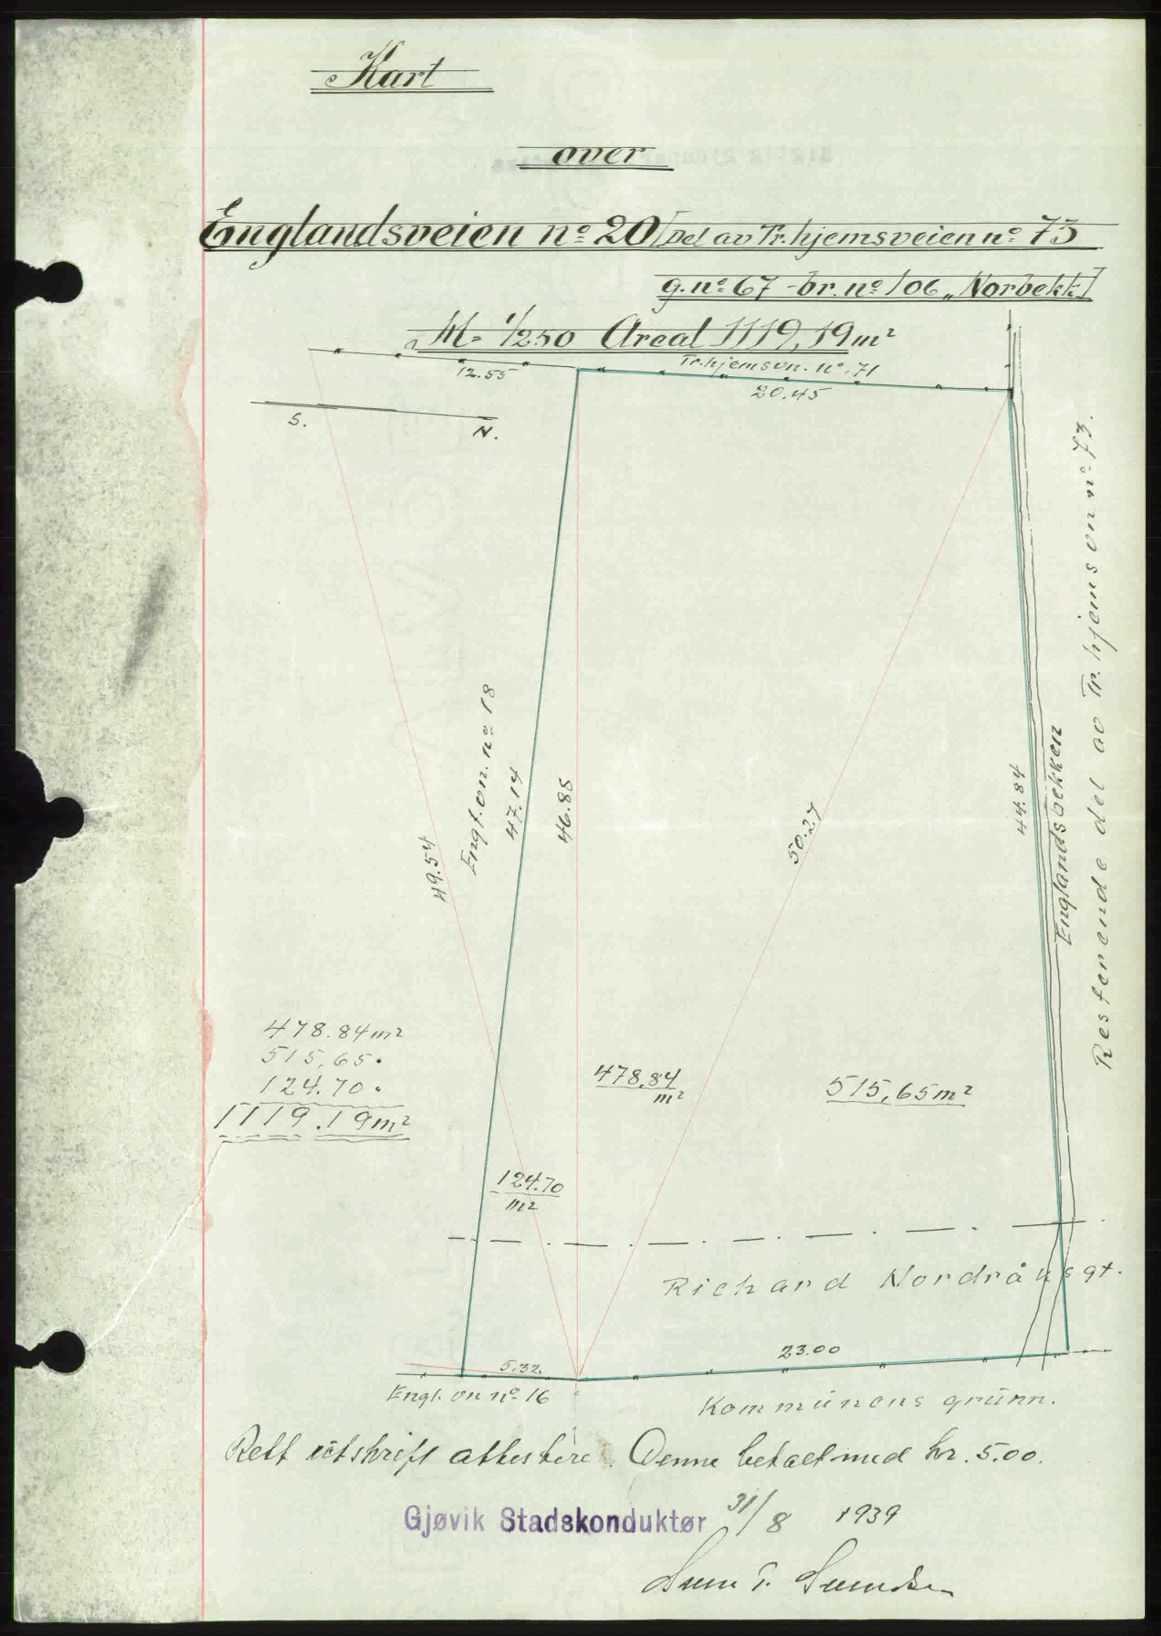 Kart
over
Englandsveien nº 20 [Del av Tr.hjemsveien nº 73
g. nº 67 - br. nº 106 „Norbekk"]
M = 1/250 Areal 1119,19 m²
Tr.hjemsvn. nº 71
12.55
20.45
S.
N.
Resterende del av Tr.hjemsvn nº 73.
Englandsbekken
44.84
50.27
46.88
47.14
Engl.vn. nº 18
49.54
478.84 m²
515,65 "
124.70 "
1119.19 m²
478,84 m²
515,65 m²
124.70 m²
Richard Nordråksgt.
23.00
5.32
Engl. vn nº 16
Kommunens grunn.
Rett utskrift attesteres. Denne betalt med kr. 5.00.
Gjøvik Stadskonduktør 31/8 1939